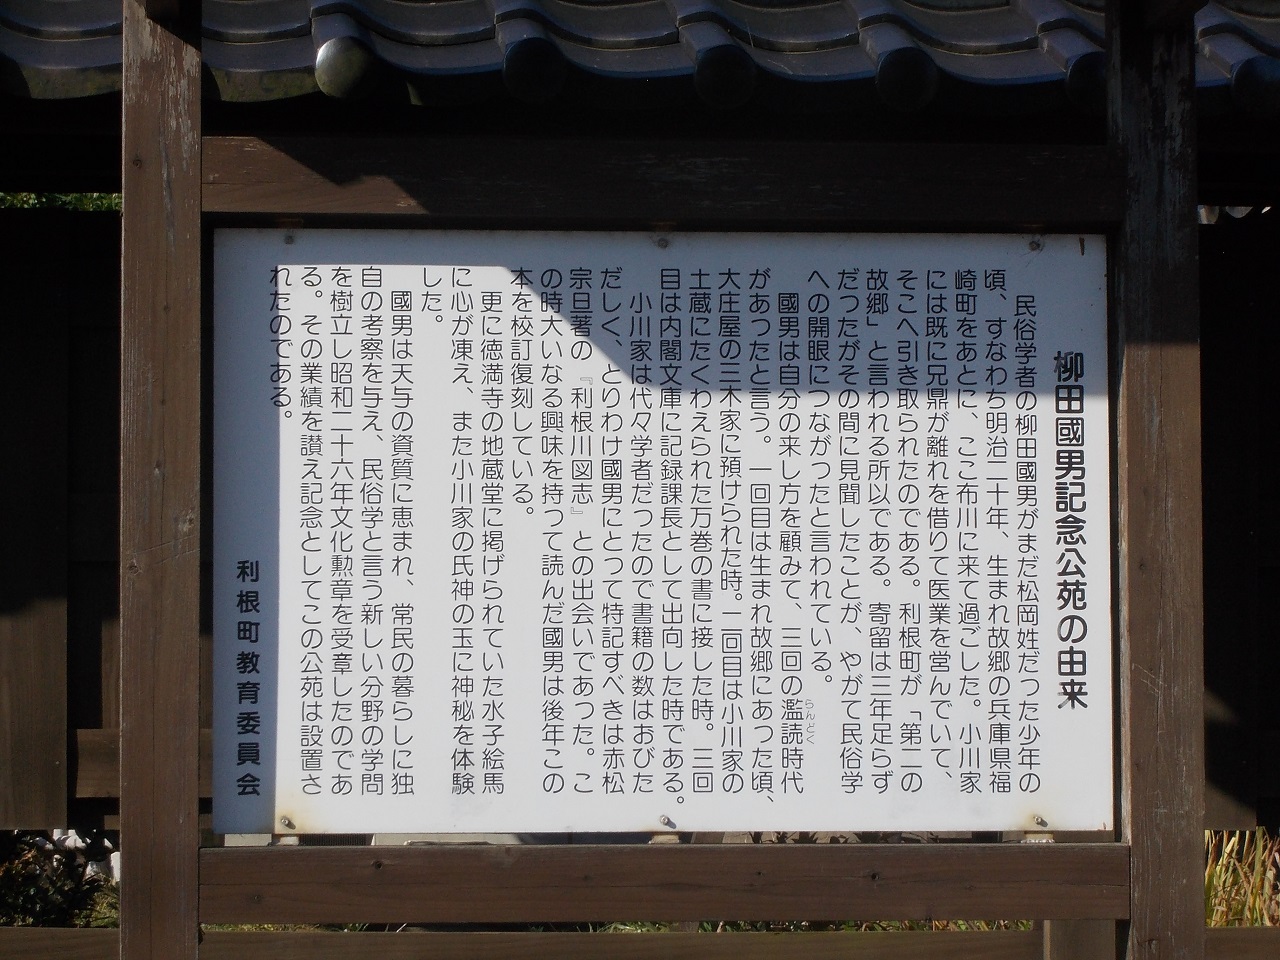 柳田國男記念公苑の由来
民俗学者の柳田國男がまだ松岡姓だった少年の
頃、すなわち明治二十年、生まれ故郷の兵庫県福
崎町をあとに、ここ布川に来て過ごした。小川家
には既に兄鼎が離れを借りて医業を営んでいて、
そこへ引き取られたのである。利根町が「第二の
故郷」と言われる所以である。寄留は三年足らず
だったがその間に見聞したことが、やがて民俗学
への開眼につながつたと言われている。
國男は自分の来し方を顧みて、三回の濫読時代
らんどく
があつたと言う。一回目は生まれ故郷にあつた頃、
大庄屋の三木家に預けられた時。二回目は小川家の
土蔵にたくわえられた万巻の書に接した時。三回
目は内閣文庫に記録課長として出向した時である。
小川家は代々学者だつたので書籍の数はおびた
だしく、とりわけ國男にとって特記すべきは赤松
宗旦著の『利根川図志』との出会いであつた。こ
の時大いなる興味を持つて読んだ國男は後年この
本を校訂復刻している。
更に徳満寺の地蔵堂に掲げられていた水子絵馬
に心が凍え、また小川家の氏神の玉に神秘を体験
した。
國男は天与の資質に恵まれ、常民の暮らしに独
自の考察を与え、民俗学と言う新しい分野の学問
を樹立し昭和二十六年文化勲章を受章したのであ
る。その業績を讃え記念としてこの公苑は設置さ
れたのである。
利根町教育委員会